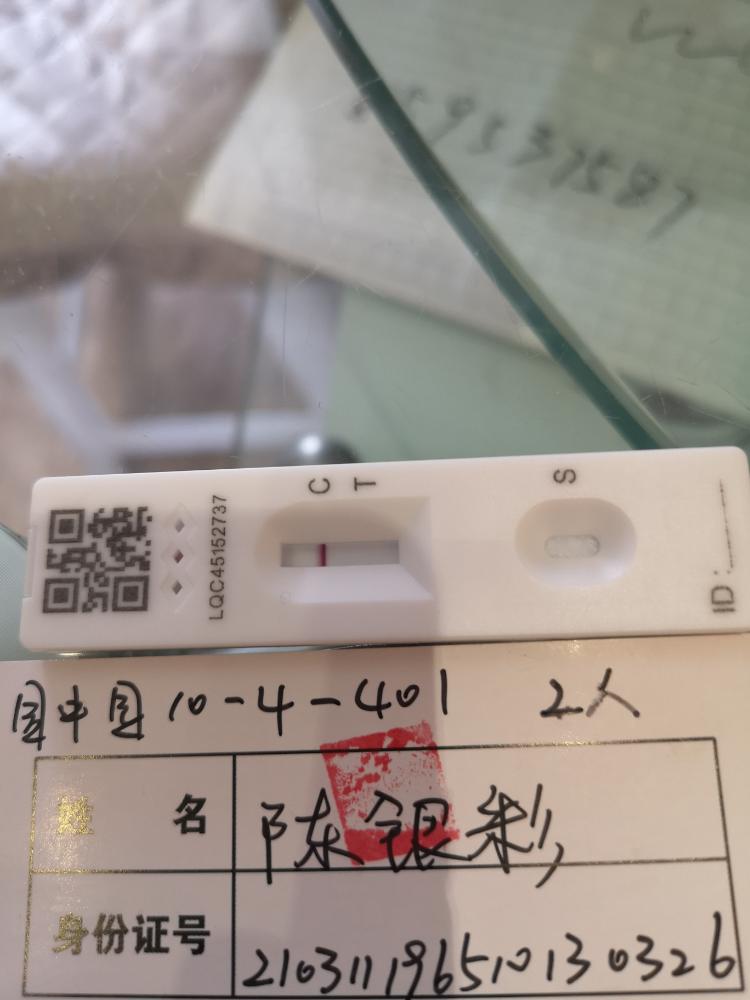 C T
S
LQC45152737
ID:
园中园10-4-401 2人
姓 名 陈银彩
身份证号 210311196510130326